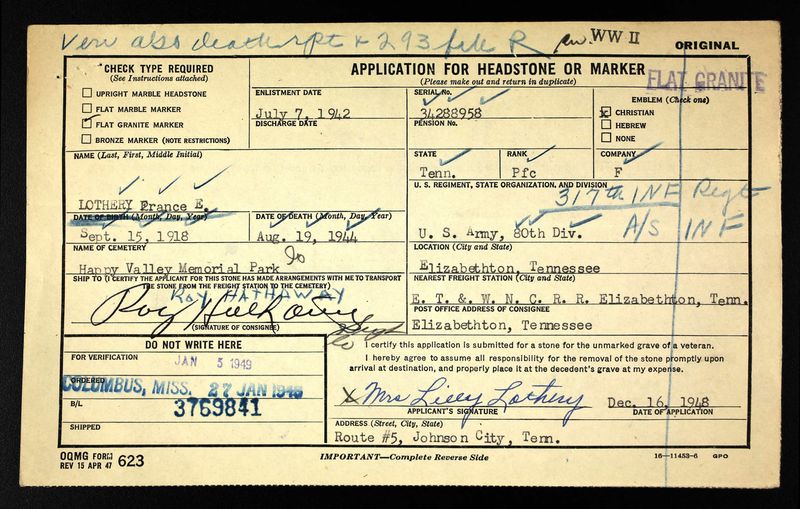 Veri also death rpt & 293 file R
WW II
ORIGINAL
CHECK TYPE REQUIRED
(See Instructions attached)
UPRIGHT MARBLE HEADSTONE
FLAT MARBLE MARKER
FLAT GRANITE MARKER
BRONZE MARKER (NOTE RESTRICTIONS)
APPLICATION FOR HEADSTONE OR MARKER
(Please make out and return in duplicate)
FLAT GRANITE
ENLISTMENT DATE
July 7, 1942
DISCHARGE DATE
SERIAL No.
34288958
PENSION No.
EMBLEM (Check one)
x CHRISTIAN
HEBREW
NONE
NAME (Last, First, Middle Initial)
LOTHERY France E.
STATE
Tenn.
RANK
Pfc
COMPANY
F
U. S. REGIMENT, STATE ORGANIZATION, AND DIVISION
317th INF Regt
U. S. Army, 80th Div.
A/S INF
DATE OF BIRTH (Month, Day, Year)
Sept. 15, 1918
DATE OF DEATH (Month, Day, Year)
Aug. 19, 1944
NAME OF CEMETERY
Happy Valley Memorial Park
LOCATION (City and State)
Elizabethton, Tennessee
SHIP TO (I CERTIFY THE APPLICANT FOR THIS STONE HAS MADE ARRANGEMENTS WITH ME TO TRANSPORT
THE STONE FROM THE FREIGHT STATION TO THE CEMETERY)
ROY HATHAWAY
Roy Hathaway
(SIGNATURE OF CONSIGNEE)
NEAREST FREIGHT STATION (City and State)
E. T. &. W. N. C. R. R. Elizabethton, Tenn.
POST OFFICE ADDRESS OF CONSIGNEE
Elizabethton, Tennessee
DO NOT WRITE HERE
FOR VERIFICATION
JAN 5 1949
ORDERED
COLUMBUS, MISS. 27 JAN 1949
B/L
3769841
SHIPPED
I certify this application is submitted for a stone for the unmarked grave of a veteran.
I hereby agree to assume all responsibility for the removal of the stone promptly upon
arrival at destination, and properly place it at the decedent's grave at my expense.
x Mrs Lilly Lothery
Dec. 16, 1948
APPLICANT'S SIGNATURE
DATE OF APPLICATION
ADDRESS (Street, City, State)
Route #5, Johnson City, Tenn.
OQMG FORM 623
REV 15 APR 47
IMPORTANT—Complete Reverse Side
16—11453-6 GPO